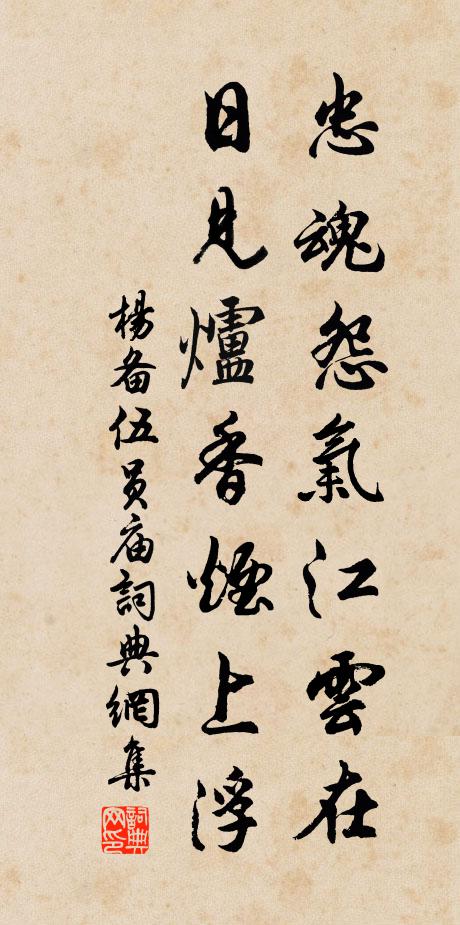 忠魂怨氣江雲在
日見爐香煙上浮
楊备伍员庙詞典網集
詞典网印